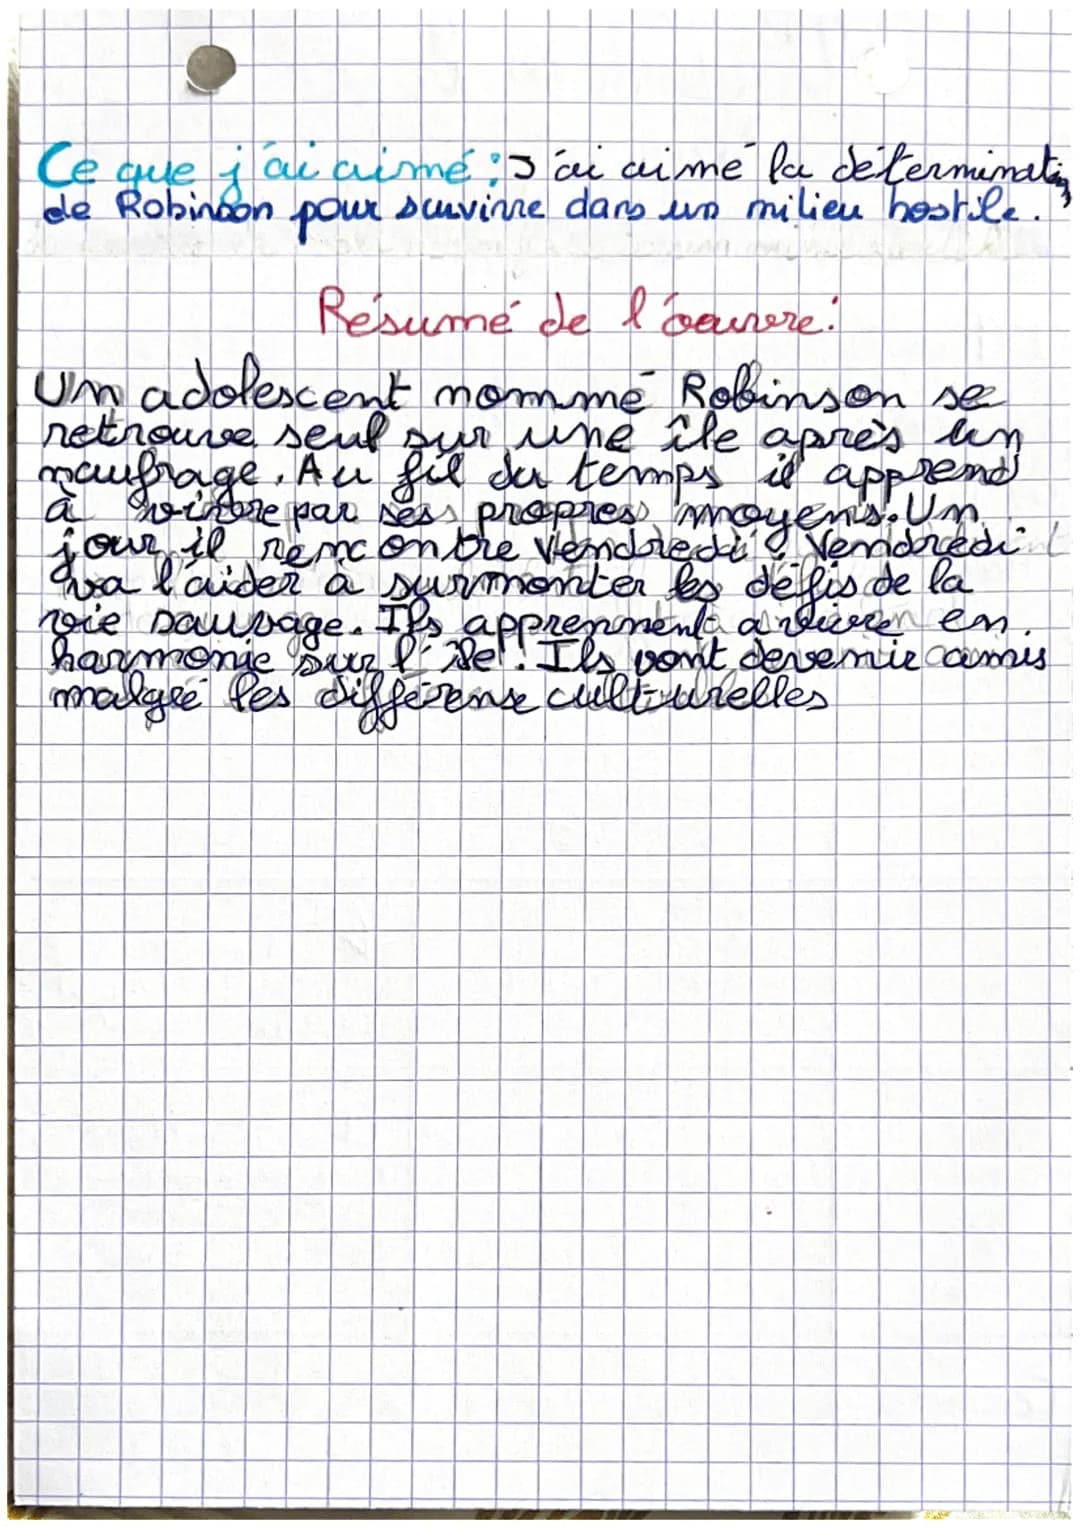 Ce que j'ai aimé : J'ai aimé la détermination
de Robinson pour survivre dans un milieu hostile.
Résumé de l'oeuvre :
Un adolescent nommé Robinson se
retrouve seul sur une île après un
naufrage. Au fil du temps il apprend
à vivre par ses propres moyens. Un
jour il rencontre Vendredi. Vendredi
va l'aider à surmonter les défis de la
vie sauvage. Ils apprennent a vivre en
harmonie sur l'île. Ils vont devenir amis
malgré les différense culturelles